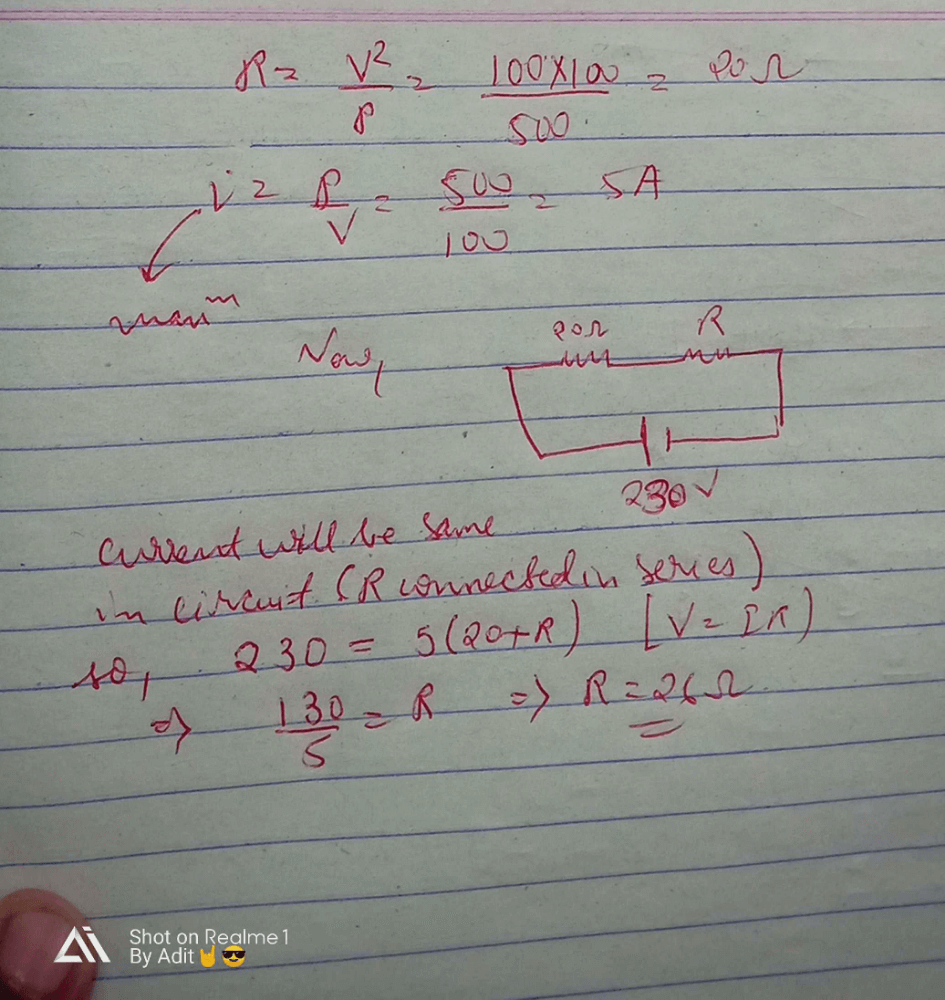 R = V²/P = 100×100/500 = 20Ω
i = P/V = 500/100 = 5A
maxᵐ
Now,
20Ω R
230V
Current will be same
in circuit (R connected in series)
so, 230 = 5(20+R) [V = IR)
⇒ 130/5 = R ⇒ R = 26Ω
Ai
Shot on Realme 1
By Adit 🤘😎